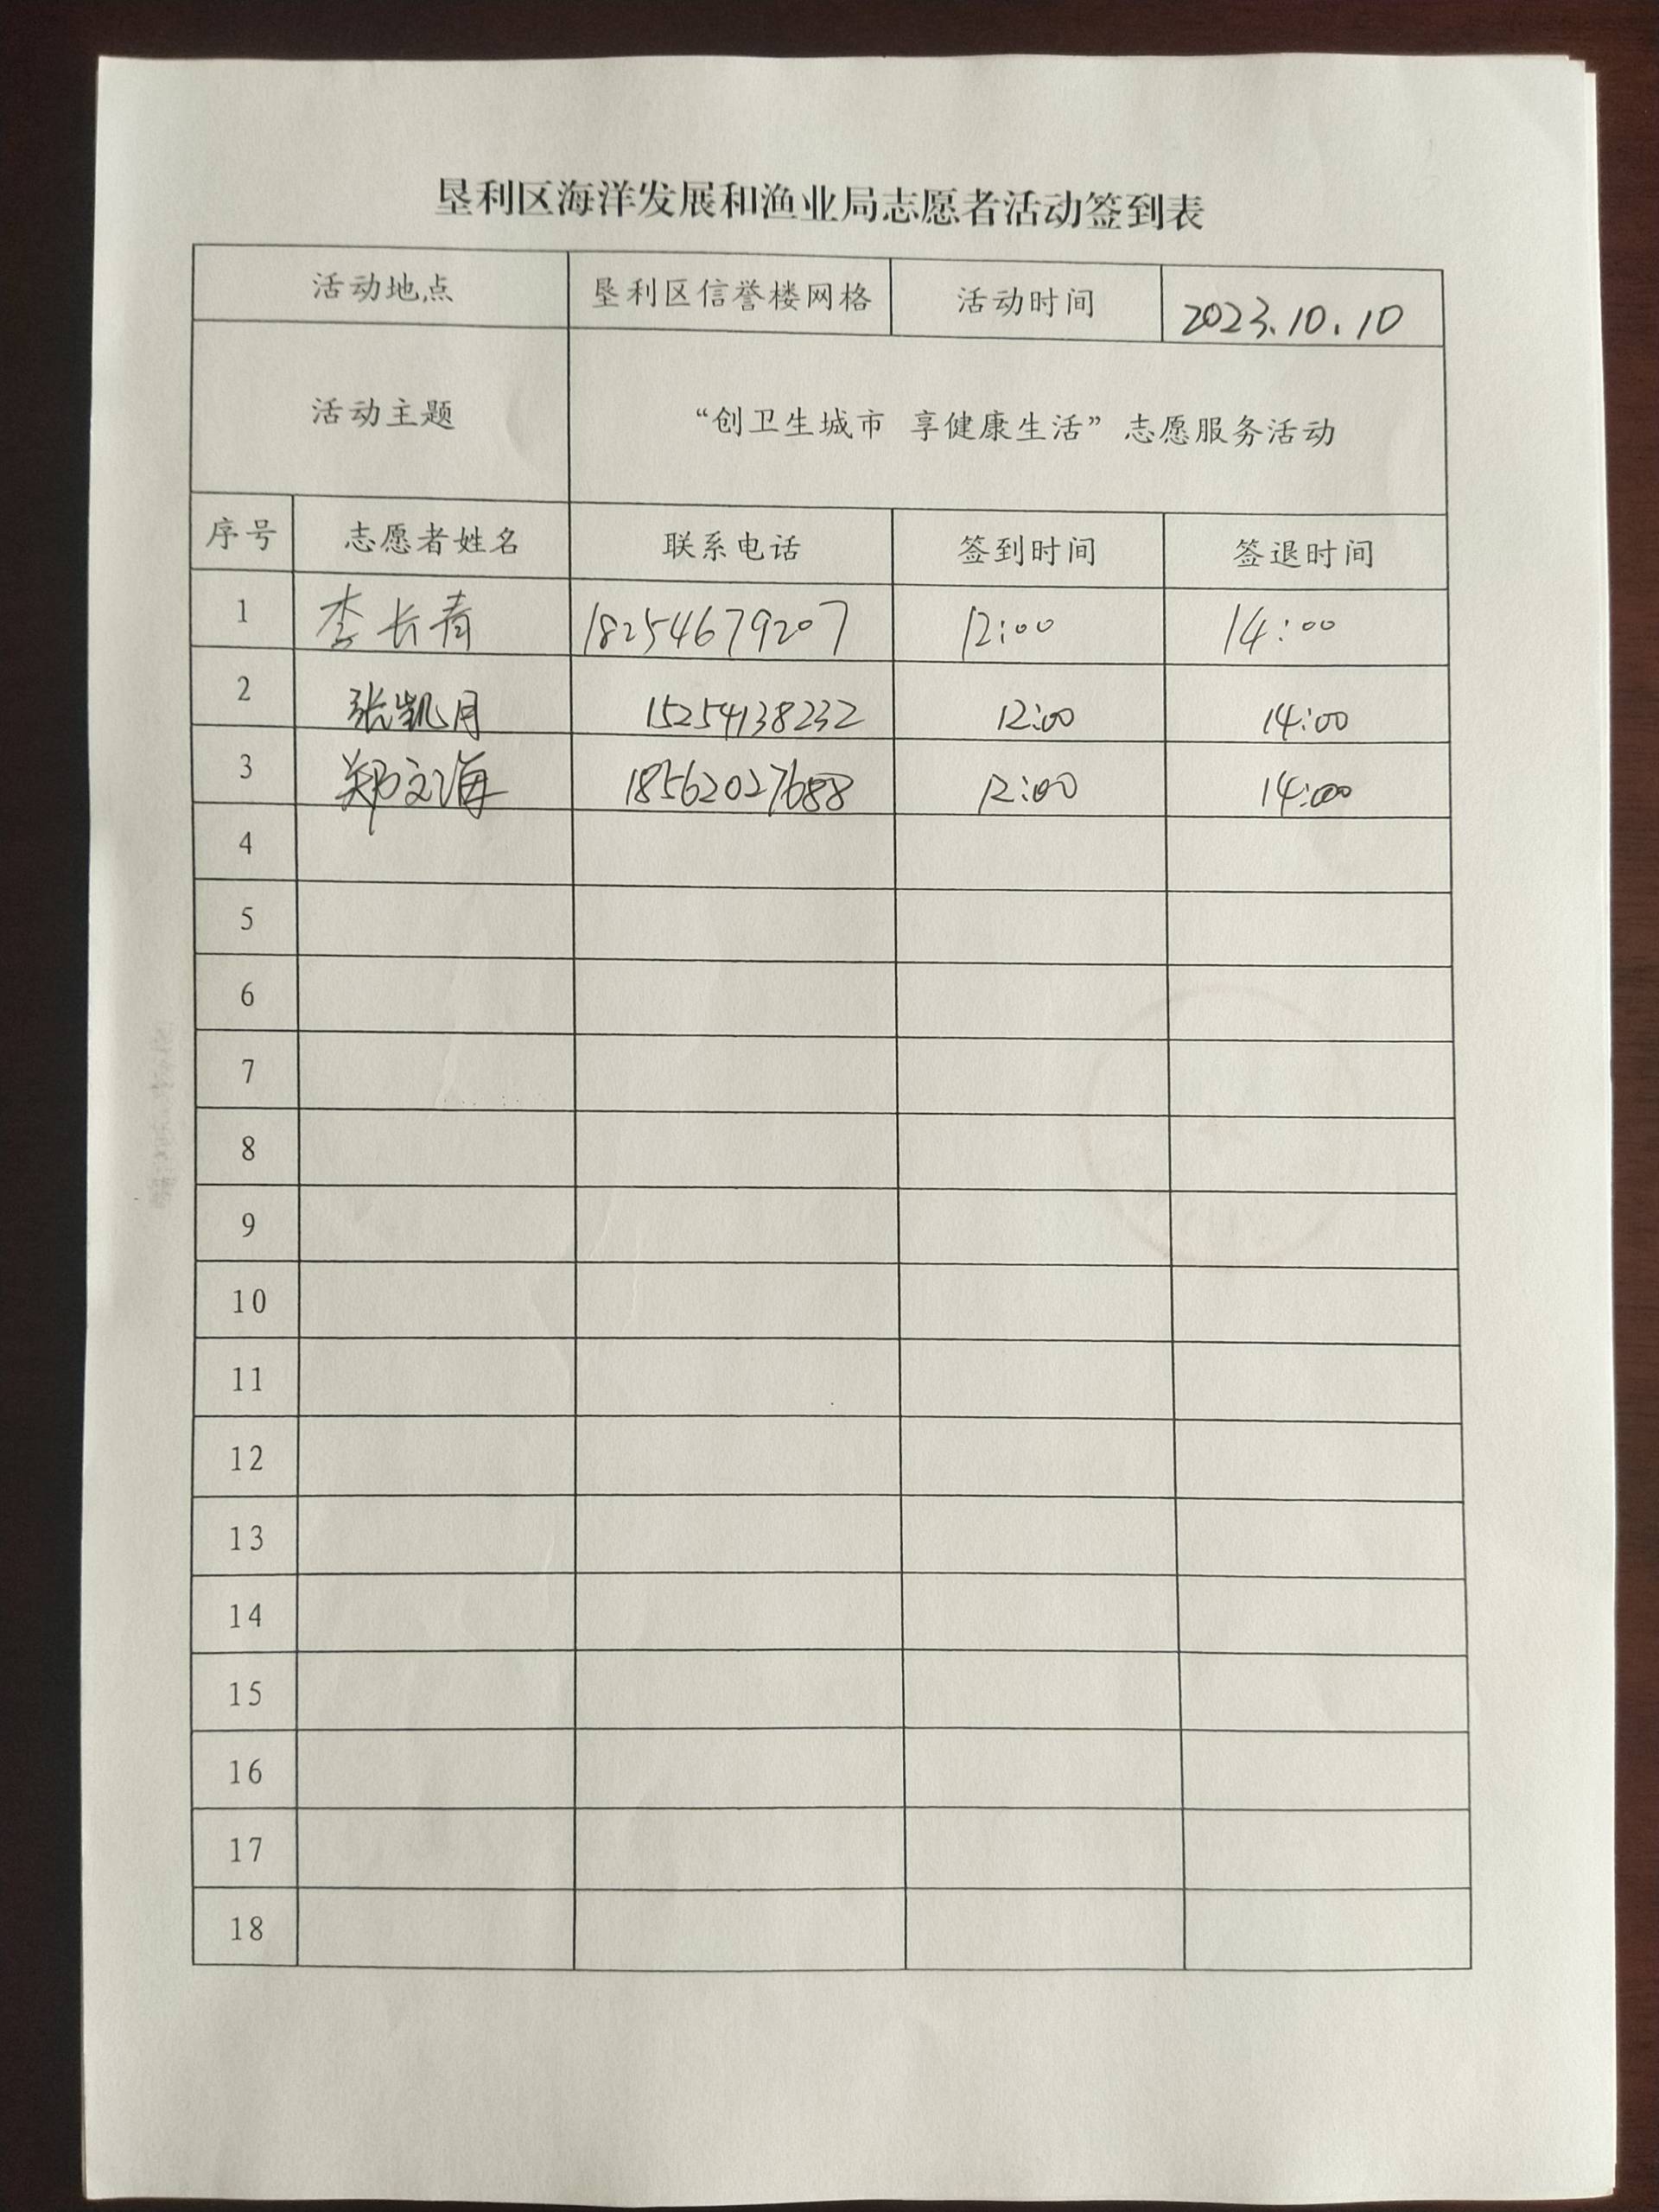 垦利区海洋发展和渔业局志愿者活动签到表
活动地点 垦利区信誉楼网格 活动时间 2023.10.10
活动主题 “创卫生城市 享健康生活”志愿服务活动
序号 志愿者姓名 联系电话 签到时间 签退时间
1 李长青 18254679207 12:00 14:00
2 张凯月 15254138232 12:00 14:00
3 郑文海 18562027688 12:00 14:00
4
5
6
7
8
9
10
11
12
13
14
15
16
17
18